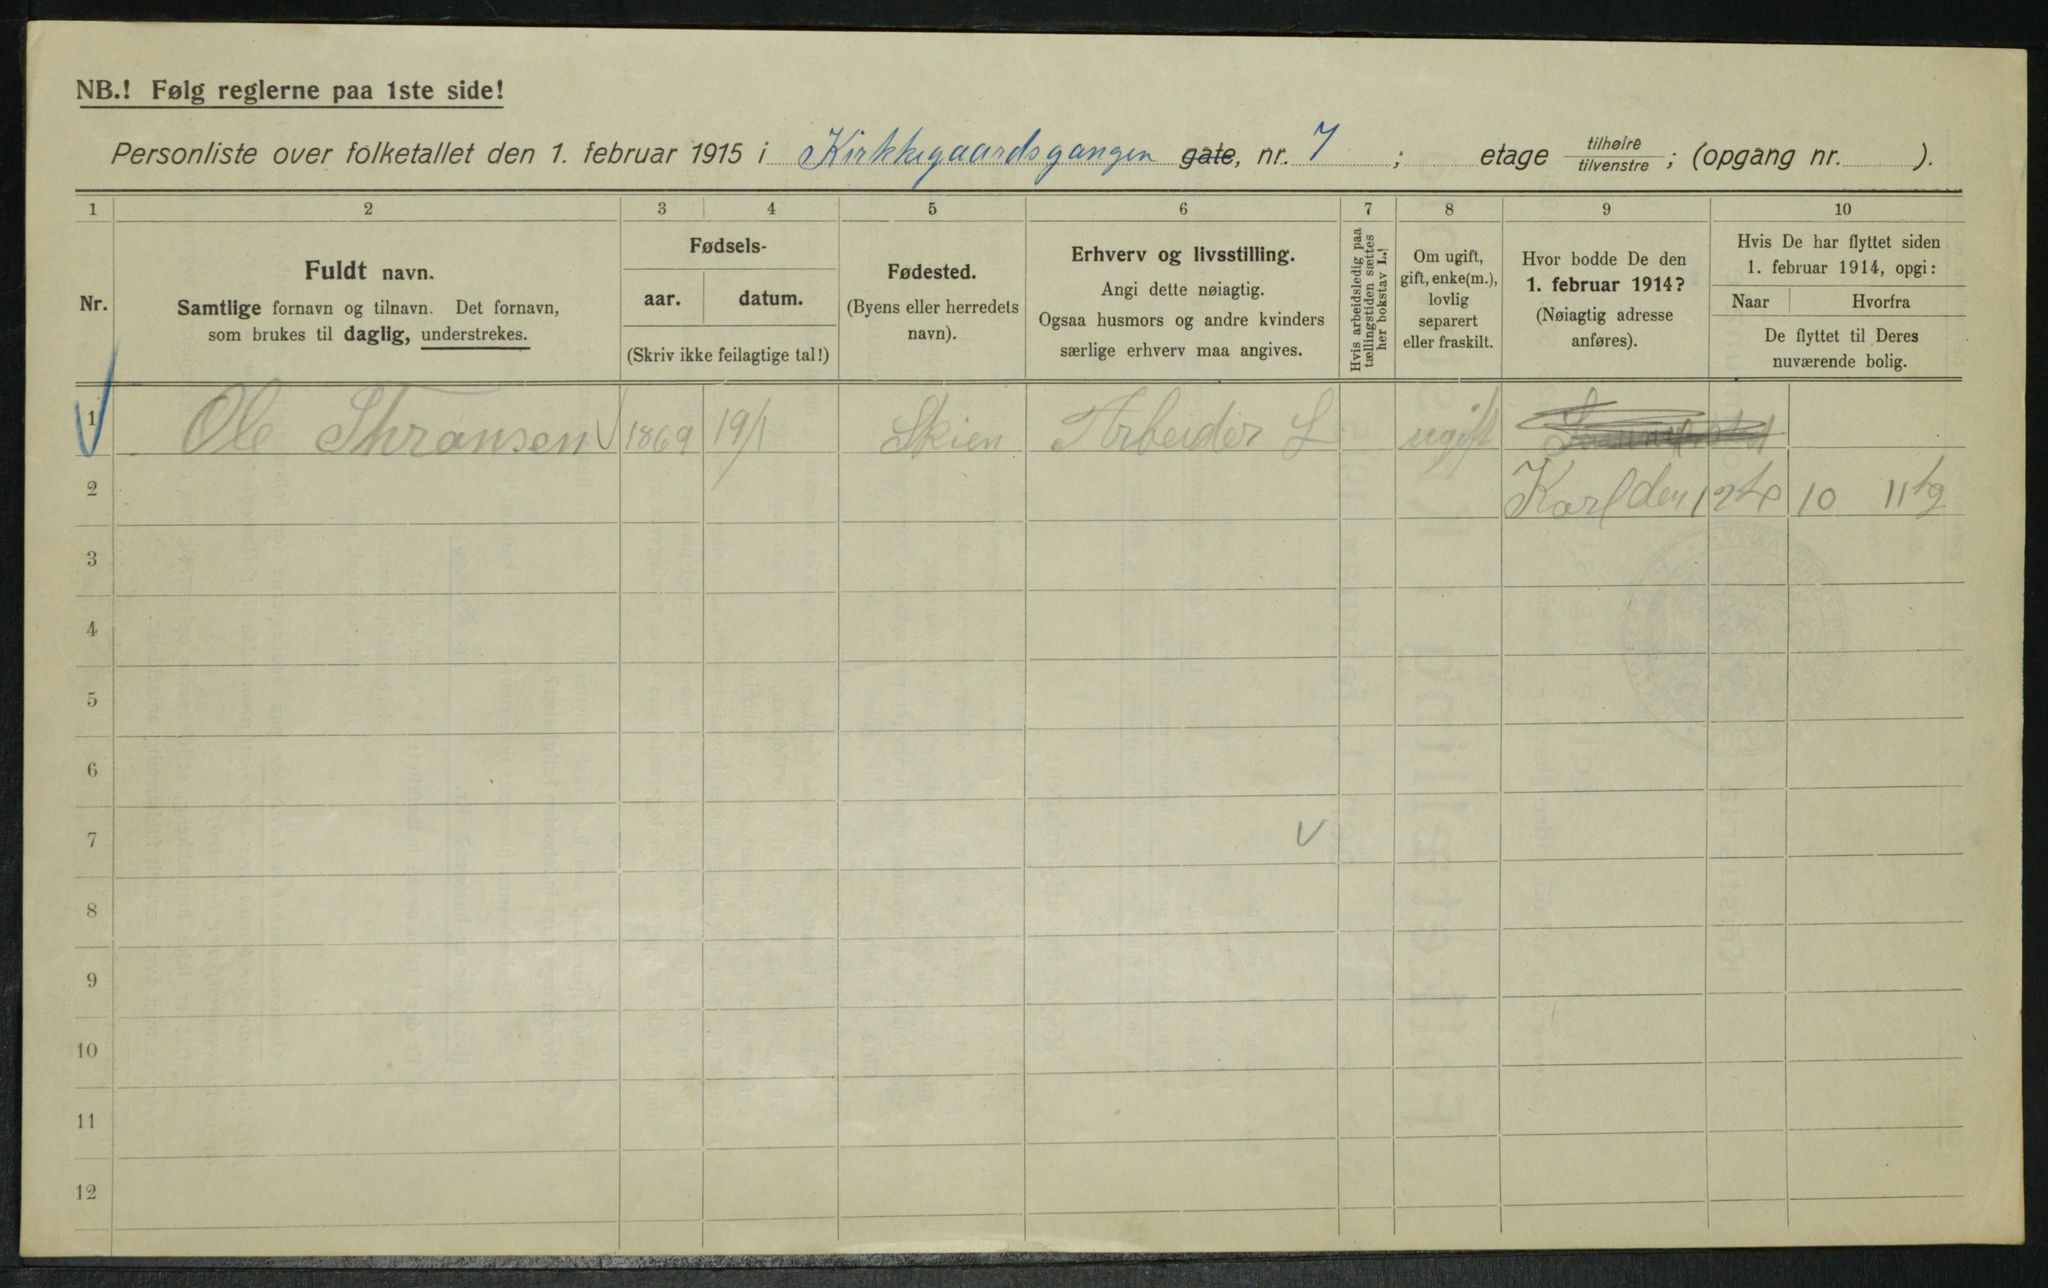 NB.! Følg reglerne paa 1ste side!
Personliste over folketallet den 1. februar 1915 i Kirkkegaardsgangen gate, nr. 7 ; etage tilhøire tilvenstre ; (opgang nr. ).
1 2 3 4 5 6 7 8 9 10
Nr.
Fuldt navn.
Samtlige fornavn og tilnavn. Det fornavn,
som brukes til daglig, understrekes.
Fødsels-
aar. datum.
(Skriv ikke feilagtige tal!)
Fødested.
(Byens eller herredets
navn).
Erhverv og livsstilling.
Angi dette nøiagtig.
Ogsaa husmors og andre kvinders
særlige erhverv maa angives.
Hvis arbeidsledig paa
tællingstiden sættes
her bokstav L.
Om ugift,
gift, enke(m.),
lovlig
separert
eller fraskilt.
Hvor bodde De den
1. februar 1914?
(Nøiagtig adresse
anføres).
Hvis De har flyttet siden
1. februar 1914, opgi:
Naar Hvorfra
De flyttet til Deres
nuværende bolig.
1 Ole Thransen 1869 19/1 Skien Arbeider L ugift
2 Karl den 12te 10
3
4
5
6
7
8
9
10
11
12